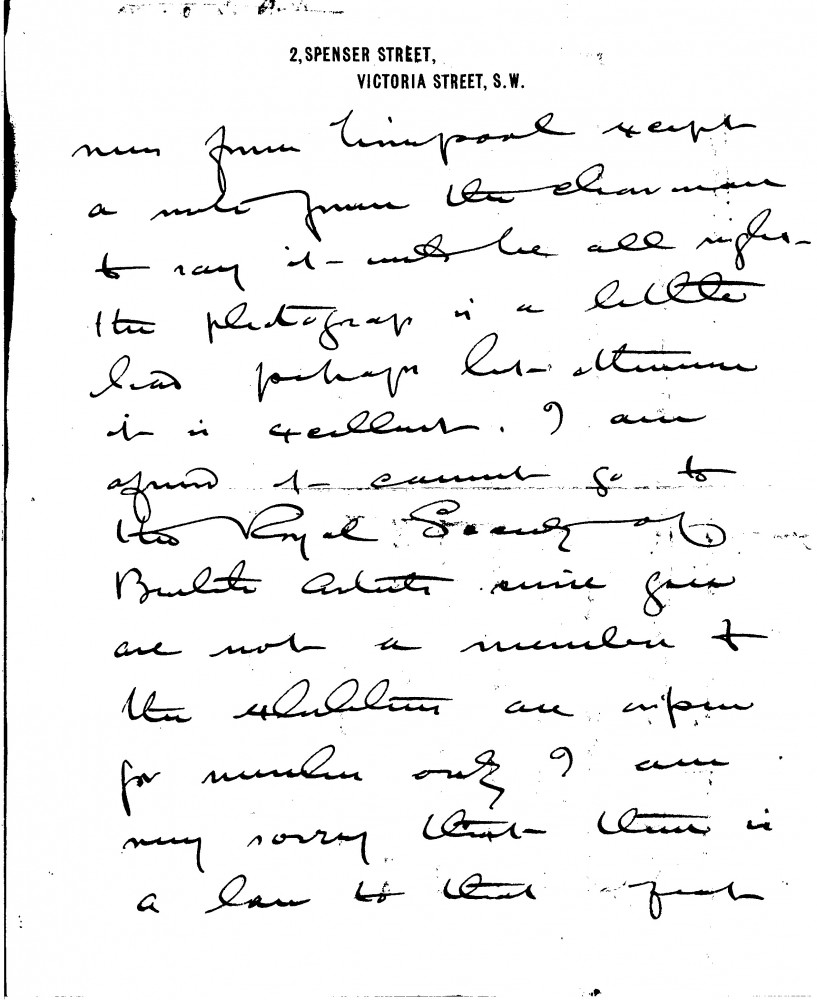 2, SPENSER STREET,
VICTORIA STREET, S.W.
news from Liverpool except
a note from the chairman
to say it will be all right
the photograp is a little
bad perhaps but otherwise
it is excellent. I am
afraid it cannot go to
the Royal Society of
British Artists since you
are not a member &
the exhibitions are open
for members only I am
very sorry that there is
a law to that effect